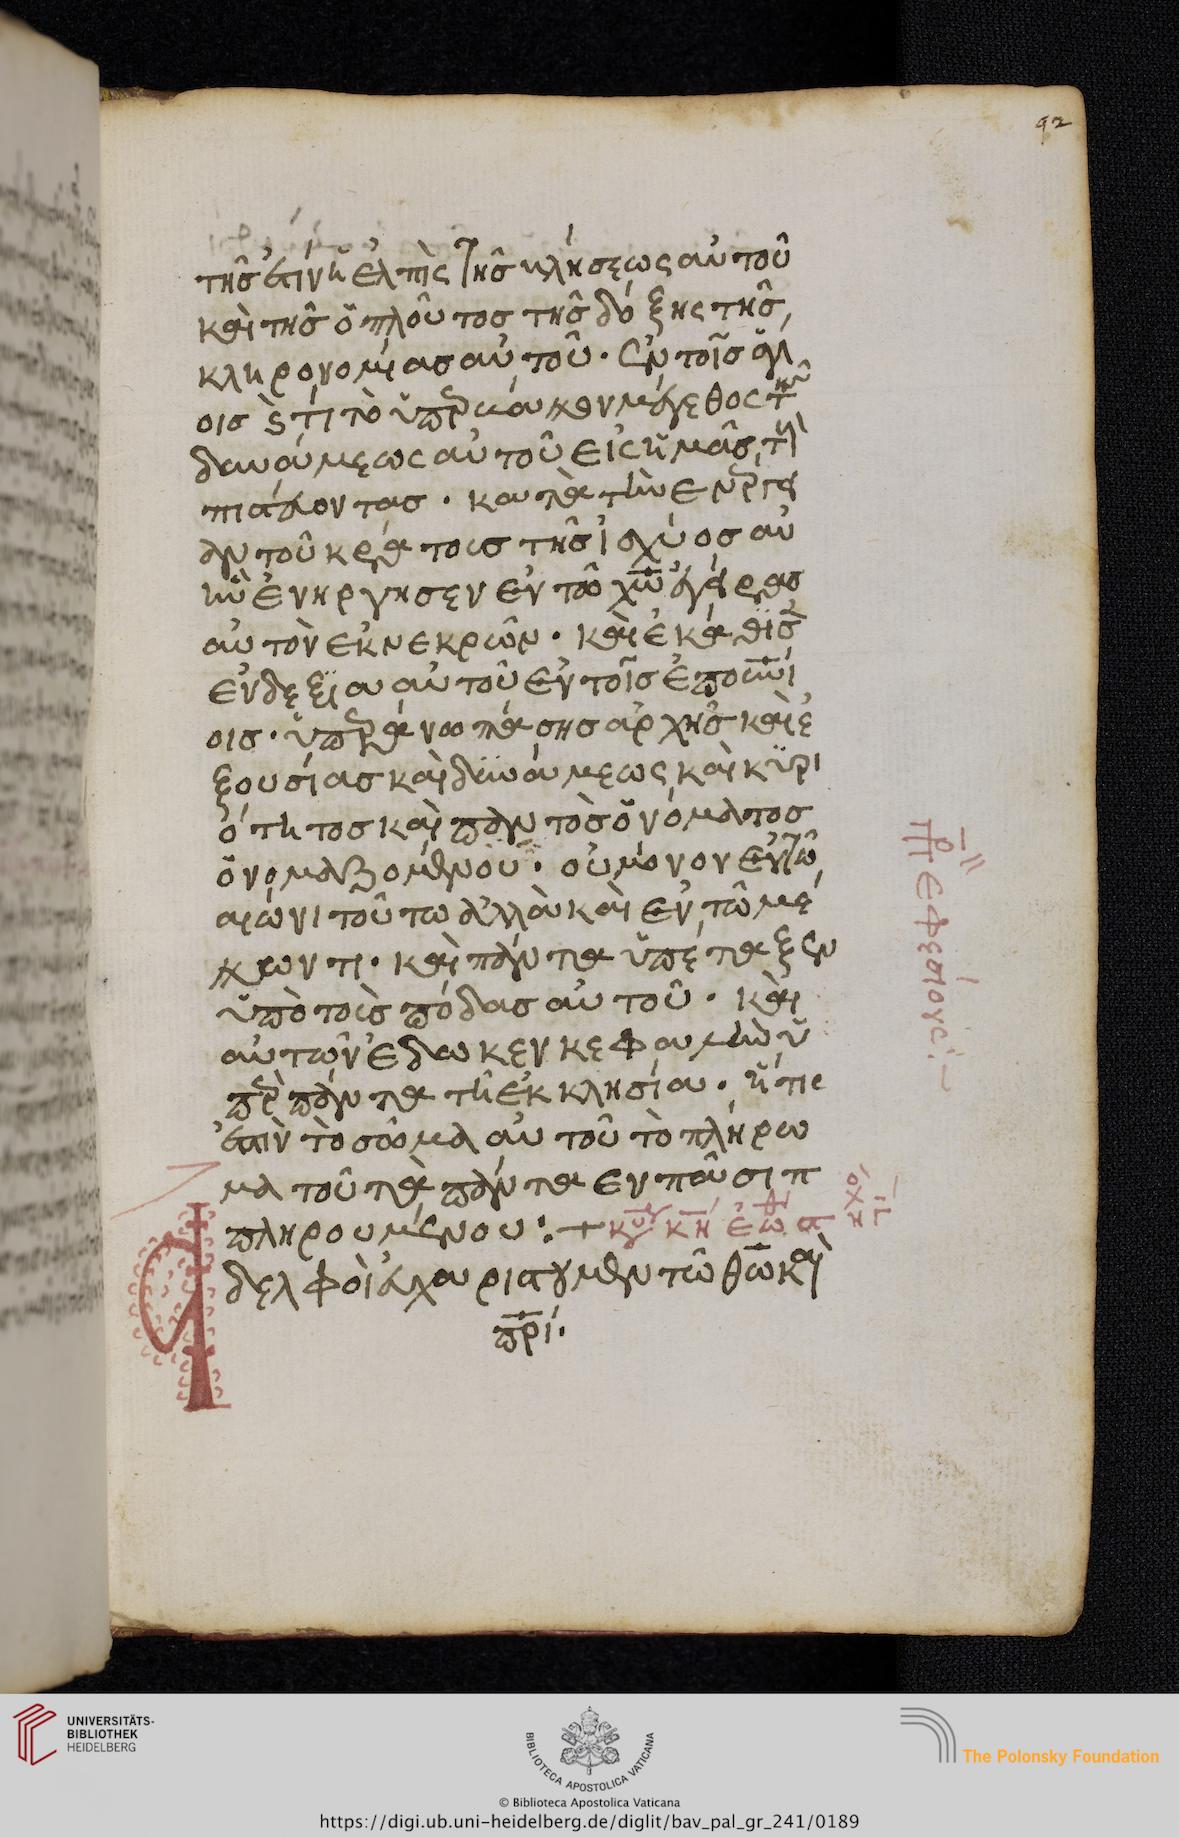 92
τῆς ἐστὶν ἡ ἐλπὶς τῆς κλήσεως αὐτοῦ
καὶ τῆς ὁ πλοῦτος τῆς δόξης τῆς
κληρονομίας αὐτοῦ. ἐν τοῖς ἁγί
οις καὶ τί τὸ ὑπερβάλλον μέγεθος τῆς
δυνάμεως αὐτοῦ εἰς ἡμᾶς τοὺς
πιστεύοντας. κατὰ τὴν ἐνέργει
αν τοῦ κράτους τῆς ἰσχύος αὐ
ἣν ἐνήργησεν ἐν τῷ χω ἐγείρας
αὐτὸν ἐκ νεκρῶν. καὶ ἐκάθισεν
ἐν δεξιᾷ αὐτοῦ ἐν τοῖς ἐπουνί
οις. ὑπεράνω πάσης ἀρχῆς καὶ ἐ
ξουσίας καὶ δυνάμεως καὶ κυρι
ότητος καὶ παντὸς ὀνόματος
ὀνομαζομένου. οὐ μόνον ἐν τῷ
αἰώνι τούτω ἀλλὰ καὶ ἐν τῷ μέ
λλωντι. καὶ πάντα ὑπέταξεν
ὑπὸ τοὺς πόδας αὐτοῦ. καὶ
αὐτὼν ἔδωκεν κεφαλὴν ὑ
πὲρ πάντα τῇ ἐκκλησίᾳ. ἥτις
ἐστὶν τὸ σῶμα αὐτοῦ τὸ πλήρω
μα τοῦ τὰ πάντα ἐν πᾶσι π
πληρουμένου:
Ἀ
δελφοὶ εὐχαριστοῦμεν τῷ θω καὶ
πρί.
πρ ἐφεσίους:
UNIVERSITÄTS-
BIBLIOTHEK
HEIDELBERG
BIBLIOTECA APOSTOLICA VATICANA
The Polonsky Foundation
© Biblioteca Apostolica Vaticana
https://digi.ub.uni-heidelberg.de/diglit/bav_pal_gr_241/0189